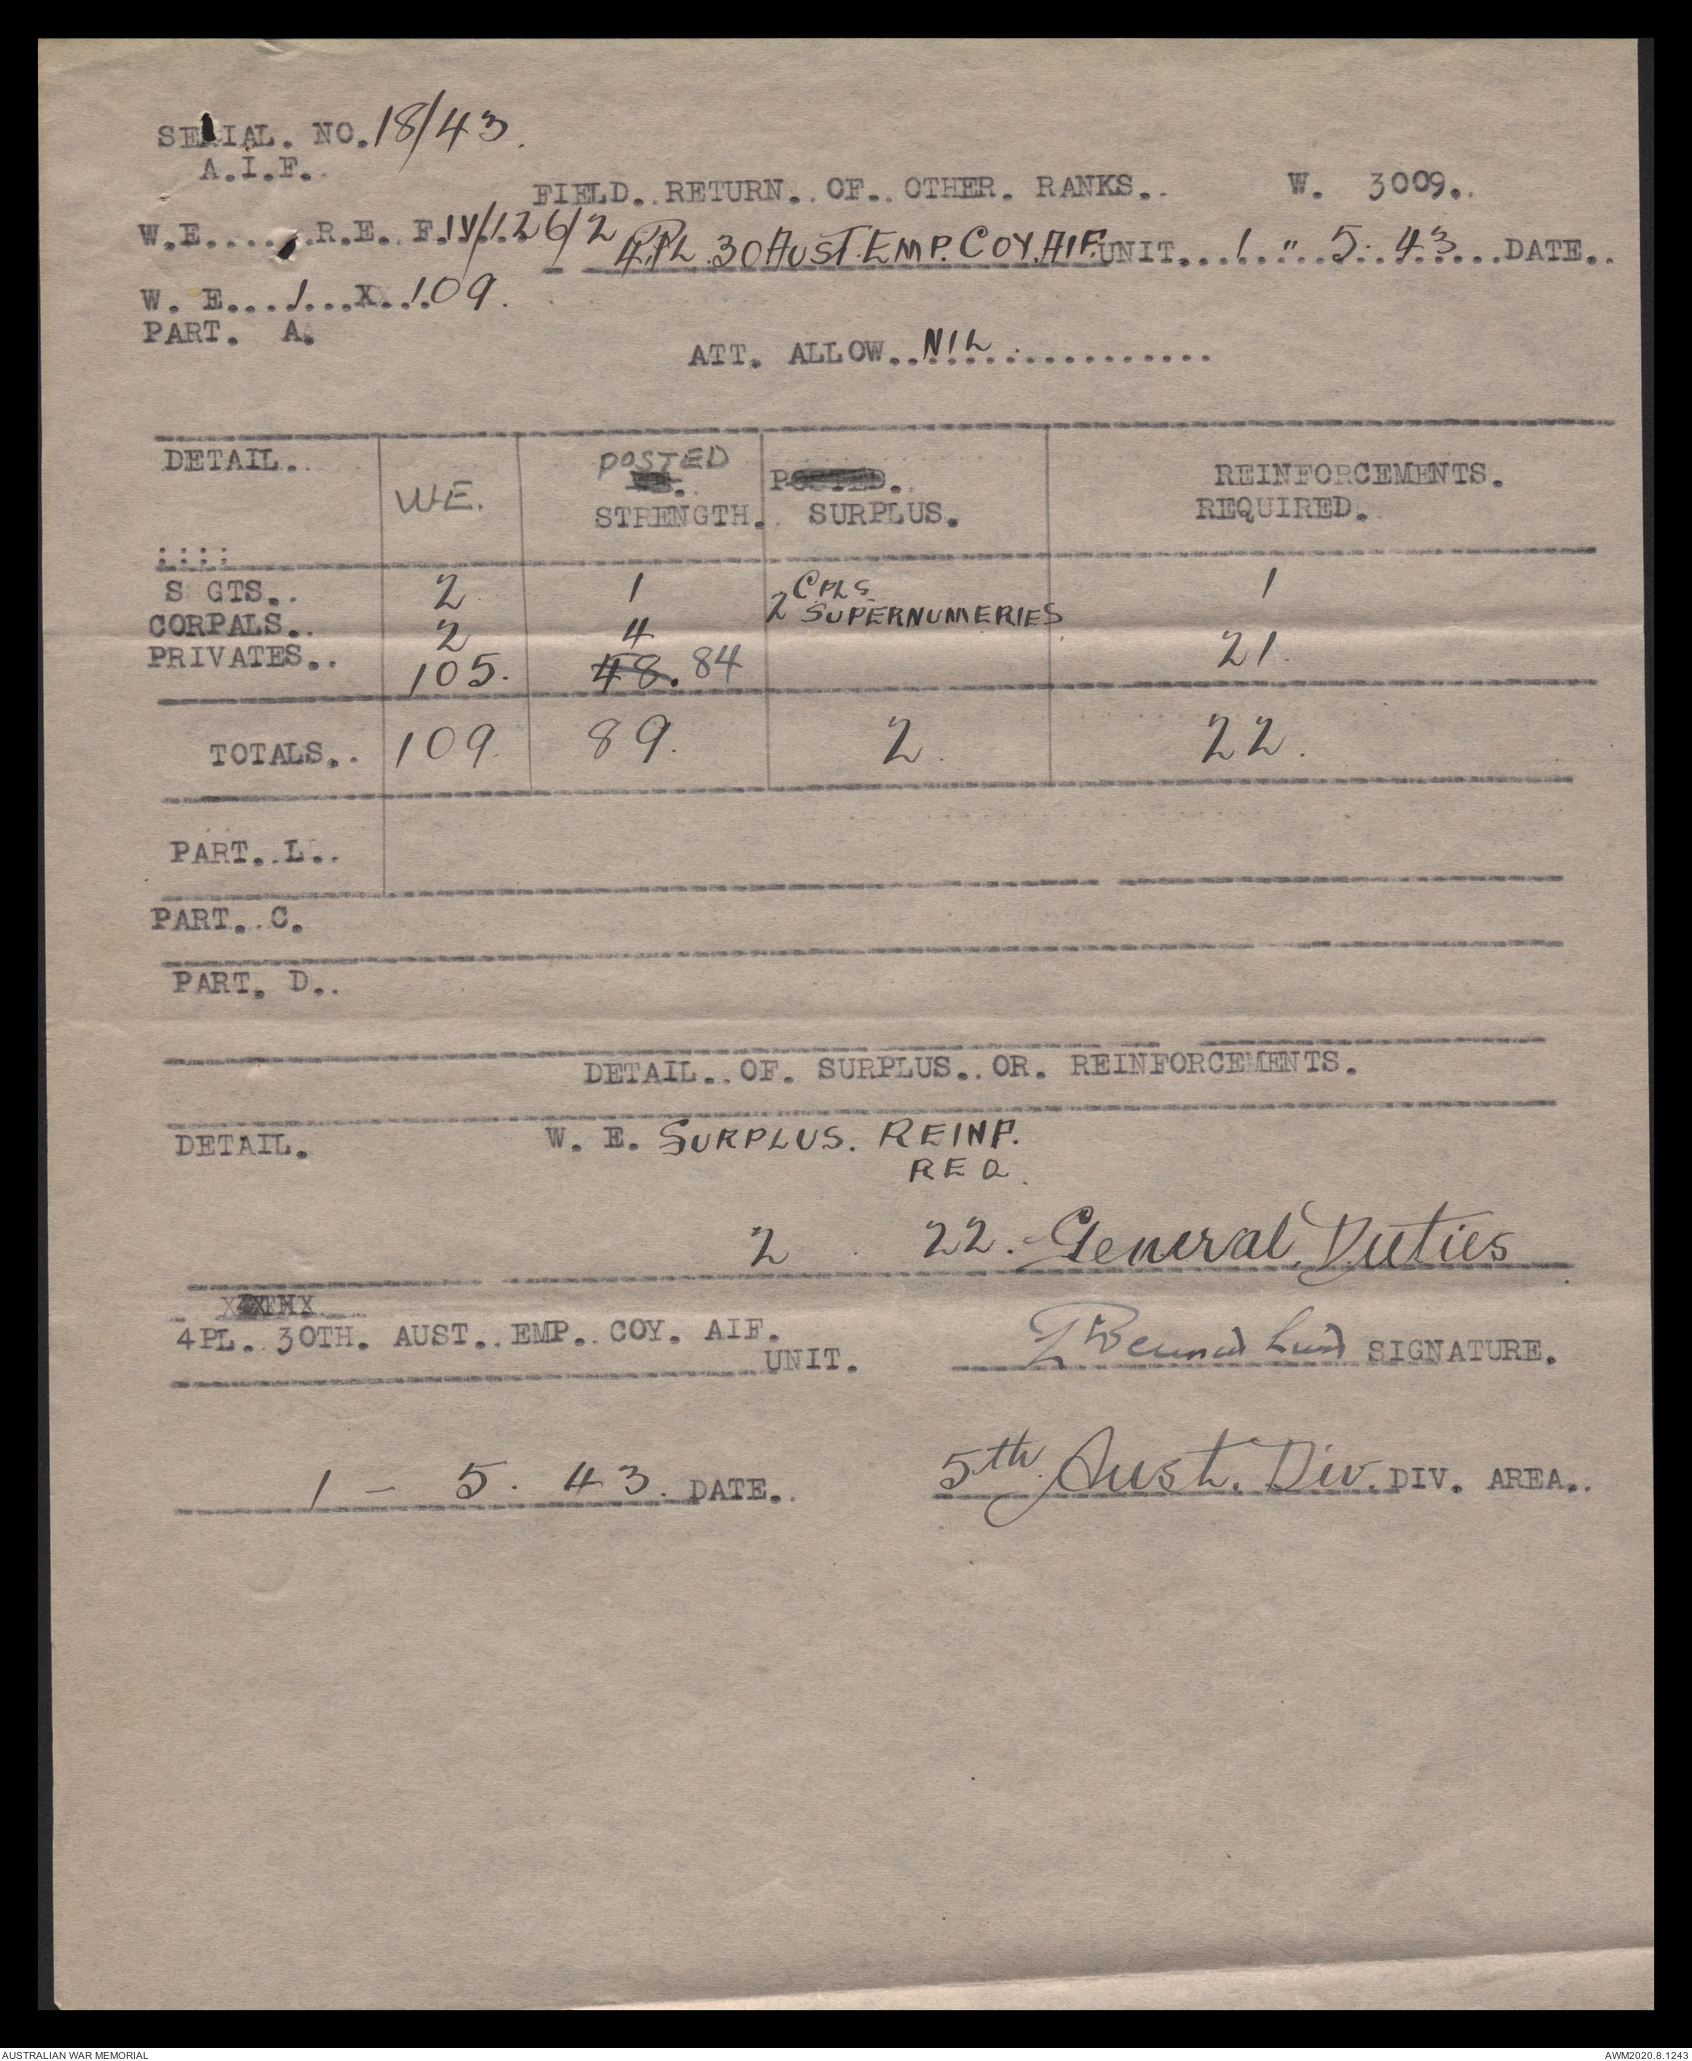 SERIAL. NO. 18/43.
A.I.F..
FIELD. RETURN. OF. OTHER. RANKS.. W. 3009..
W.E.......R.E. F.IV/126/2 4.PL. 30 AUST. EMP. COY. AIF. UNIT...1. " 5. 43...DATE..
W. E...1...X..109.
PART. A.
ATT. ALLOW..NIL................
DETAIL.. W.E. POSTED STRENGTH. SURPLUS. REINFORCEMENTS. REQUIRED.
S GTS.. 2 1 2 CPLS SUPERNUMERIES 1
CORPALS.. 2 4
PRIVATES.. 105. 48. 84 21.
TOTALS.. 109. 89. 2. 22.
PART. L..
PART. C.
PART. D..
DETAIL. OF. SURPLUS. OR. REINFORCEMENTS.
DETAIL. W. E. SURPLUS. REINF.
REQ.
2 22. - General Duties
4PL. 30TH. AUST. EMP. COY. AIF.
UNIT. SIGNATURE.
1 - 5. 43. DATE.. 5th. Aust. Div. DIV. AREA..
AUSTRALIAN WAR MEMORIAL AWM2020.8.1243